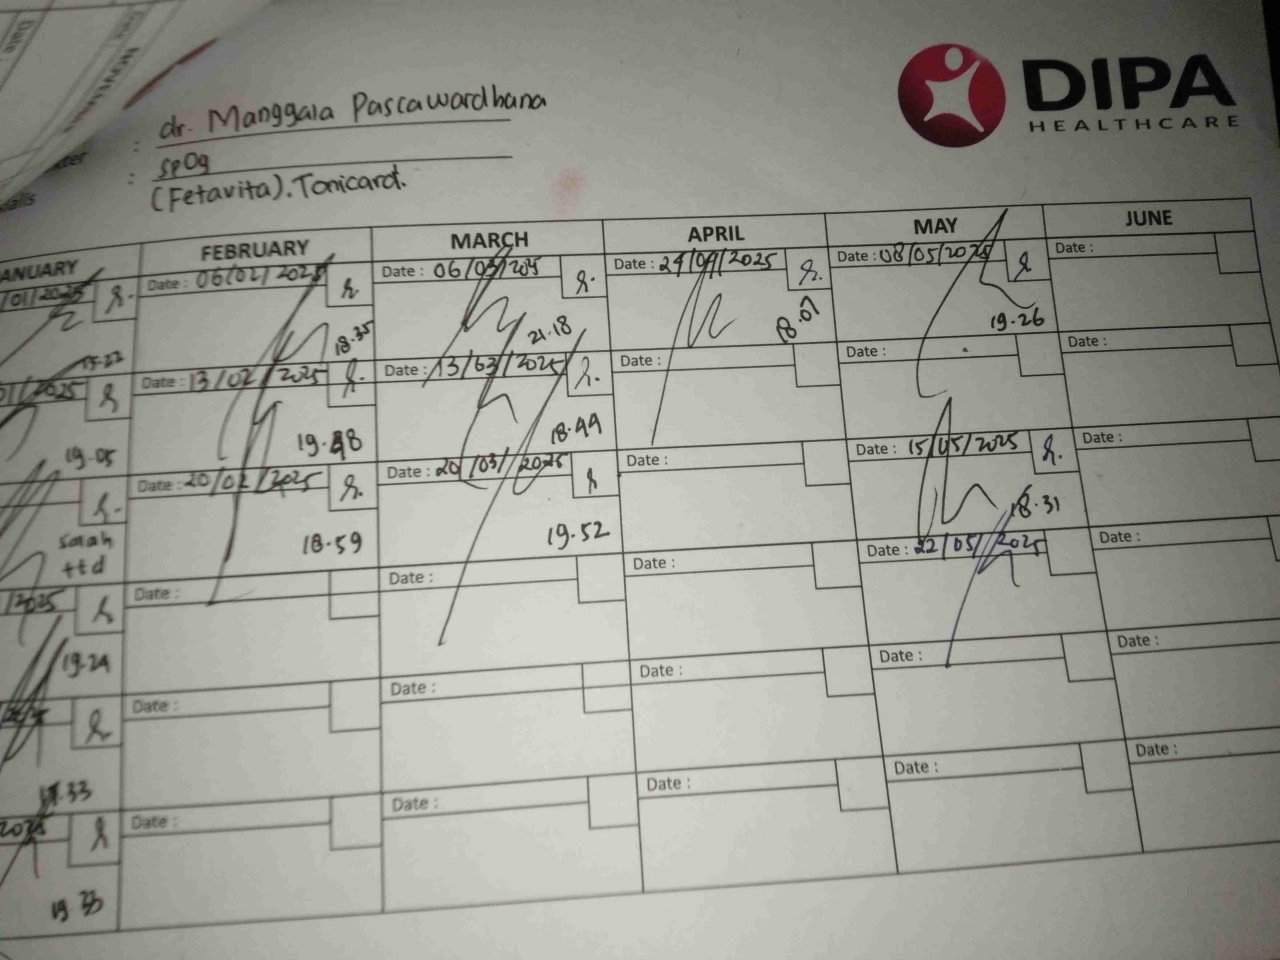 DIPA
HEALTHCARE
: dr. Manggala Pascawardhana
: SpOg
(Fetavita). Tonicard.
FEBRUARY MARCH APRIL MAY JUNE
/01/2025 Date : 06/02/2025 Date : 06/03/2025 Date : 24/04/2025 Date : 08/05/2025 Date :
18.35 21.18 18.07 19.26
01/2025 Date : 13/02/2025 Date : 13/03/2025 Date : Date : Date :
19.05 18.49
Date : 20/02/2025 Date : 20/03/2025 Date : Date : 15/05/2025 Date :
salah 18.59 19.52 18.31
ttd
/2025 Date : Date : Date : Date : 22/05/2025 Date :
19.24
Date : Date : Date : Date : Date :
.33
2025 Date : Date : Date : Date : Date :